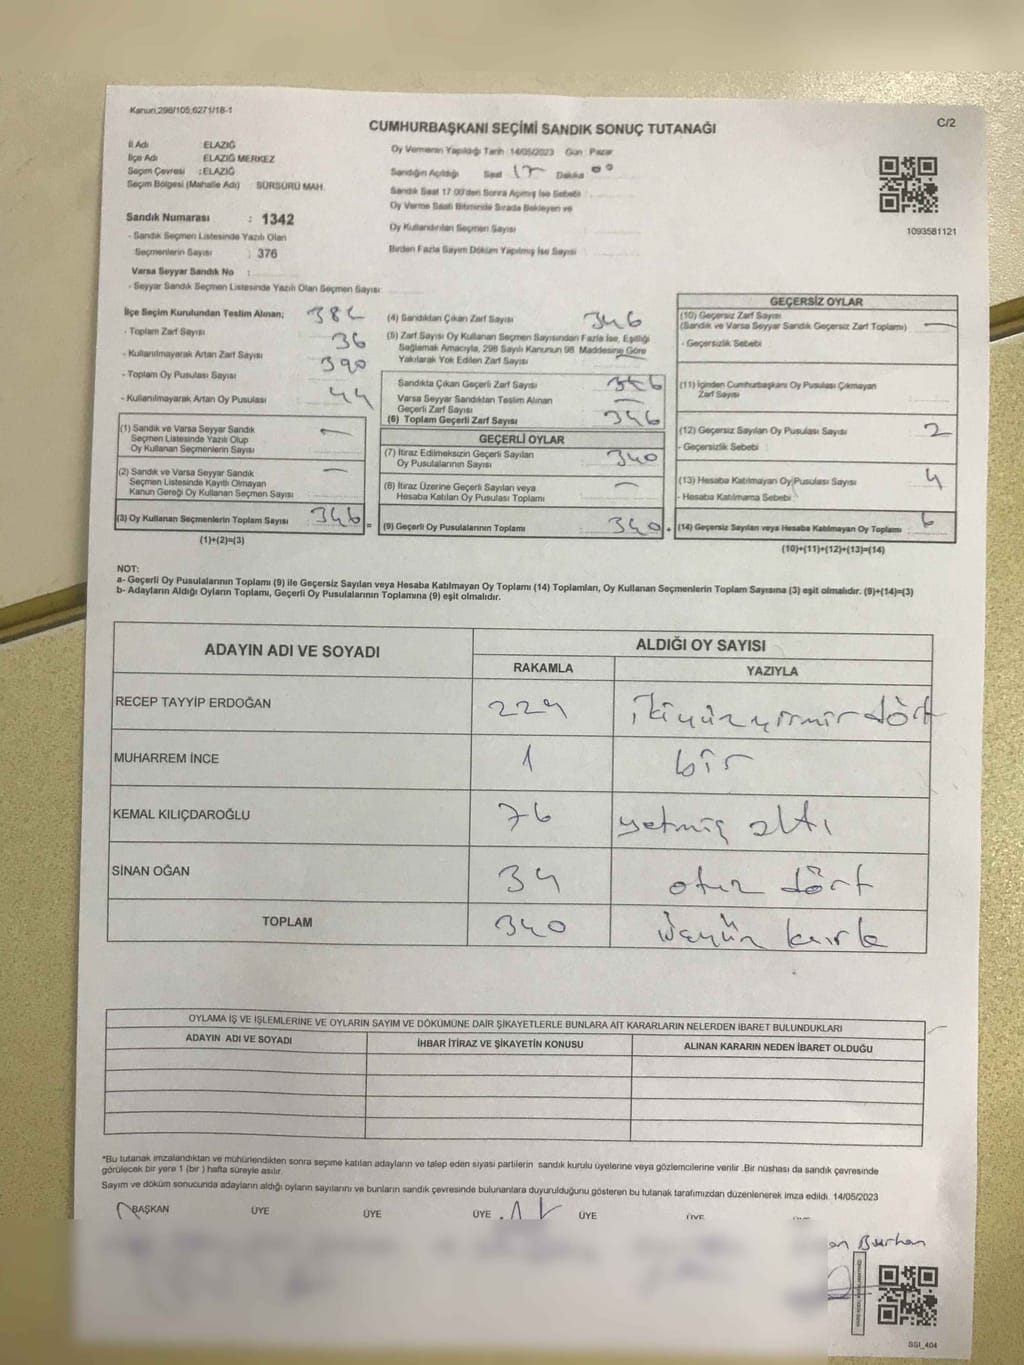 Kanun:298/105,6271/18-1
C/2
CUMHURBAŞKANI SEÇİMİ SANDIK SONUÇ TUTANAĞI
İl Adı ELAZIĞ
İlçe Adı : ELAZIĞ MERKEZ
Seçim Çevresi : ELAZIĞ
Seçim Bölgesi (Mahalle Adı) SÜRSÜRÜ MAH.
Sandık Numarası : 1342
- Sandık Seçmen Listesinde Yazılı Olan
Seçmenlerin Sayısı : 376
Varsa Seyyar Sandık No :
- Seyyar Sandık Seçmen Listesinde Yazılı Olan Seçmen Sayısı:
Oy Vermenin Yapıldığı Tarih :14/05/2023 Gün : Pazar
Sandığın Açıldığı Saat 17 Dakika 00
Sandık Saat 17:00'den Sonra Açılmış İse Sebebi
Oy Verme Saati Bitiminde Sırada Bekleyen ve
Oy Kullandırılan Seçmen Sayısı
Birden Fazla Sayım Döküm Yapılmış İse Sayısı
1093581121
İlçe Seçim Kurulundan Teslim Alınan;
- Toplam Zarf Sayısı 382
- Kullanılmayarak Artan Zarf Sayısı 36
- Toplam Oy Pusulası Sayısı 390
- Kullanılmayarak Artan Oy Pusulası 44
(1) Sandık ve Varsa Seyyar Sandık
Seçmen Listesinde Yazılı Olup
Oy Kullanan Seçmenlerin Sayısı —
(2) Sandık ve Varsa Seyyar Sandık
Seçmen Listesinde Kayıtlı Olmayan
Kanun Gereği Oy Kullanan Seçmen Sayısı —
(3) Oy Kullanan Seçmenlerin Toplam Sayısı 346 =
(1)+(2)=(3)
(4) Sandıktan Çıkan Zarf Sayısı 346
(5) Zarf Sayısı Oy Kullanan Seçmen Sayısından Fazla İse, Eşitliği
Sağlamak Amacıyla, 298 Sayılı Kanunun 98. Maddesine Göre
Yakılarak Yok Edilen Zarf Sayısı
Sandıkta Çıkan Geçerli Zarf Sayısı 346
Varsa Seyyar Sandıktan Teslim Alınan
Geçerli Zarf Sayısı —
(6) Toplam Geçerli Zarf Sayısı 346
GEÇERLİ OYLAR
(7) İtiraz Edilmeksizin Geçerli Sayılan
Oy Pusulalarının Sayısı 340
(8) İtiraz Üzerine Geçerli Sayılan veya
Hesaba Katılan Oy Pusulası Toplamı —
(9) Geçerli Oy Pusulalarının Toplamı 340 +
GEÇERSİZ OYLAR
(10) Geçersiz Zarf Sayısı
(Sandık ve Varsa Seyyar Sandık Geçersiz Zarf Toplamı) —
- Geçersizlik Sebebi
(11) İçinden Cumhurbaşkanı Oy Pusulası Çıkmayan
Zarf Sayısı
(12) Geçersiz Sayılan Oy Pusulası Sayısı 2
- Geçersizlik Sebebi
(13) Hesaba Katılmayan Oy Pusulası Sayısı 4
- Hesaba Katılmama Sebebi
(14) Geçersiz Sayılan veya Hesaba Katılmayan Oy Toplamı 6
(10)+(11)+(12)+(13)=(14)
NOT:
a- Geçerli Oy Pusulalarının Toplamı (9) ile Geçersiz Sayılan veya Hesaba Katılmayan Oy Toplamı (14) Toplamları, Oy Kullanan Seçmenlerin Toplam Sayısına (3) eşit olmalıdır. (9)+(14)=(3)
b- Adayların Aldığı Oyların Toplamı, Geçerli Oy Pusulalarının Toplamına (9) eşit olmalıdır.
ADAYIN ADI VE SOYADI ALDIĞI OY SAYISI
RAKAMLA YAZIYLA
RECEP TAYYİP ERDOĞAN 229 ikiyüzyirmi dört
MUHARREM İNCE 1 bir
KEMAL KILIÇDAROĞLU 76 yetmiş altı
SİNAN OĞAN 34 otuz dört
TOPLAM 340 üçyüz kırk
OYLAMA İŞ VE İŞLEMLERİNE VE OYLARIN SAYIM VE DÖKÜMÜNE DAİR ŞİKAYETLERLE BUNLARA AİT KARARLARIN NELERDEN İBARET BULUNDUKLARI
ADAYIN ADI VE SOYADI İHBAR İTİRAZ VE ŞİKAYETİN KONUSU ALINAN KARARIN NEDEN İBARET OLDUĞU
*Bu tutanak imzalandıktan ve mühürlendikten sonra seçime katılan adayların ve talep eden siyasi partilerin sandık kurulu üyelerine veya gözlemcilerine verilir .Bir nüshası da sandık çevresinde
görülecek bir yere 1 (bir ) hafta süreyle asılır.
Sayım ve döküm sonucunda adayların aldığı oyların sayılarını ve bunların sandık çevresinde bulunanlara duyurulduğunu gösteren bu tutanak tarafımızdan düzenlenerek imza edildi. 14/05/2023
BAŞKAN ÜYE ÜYE ÜYE ÜYE ÜYE
Burhan
SGI_404